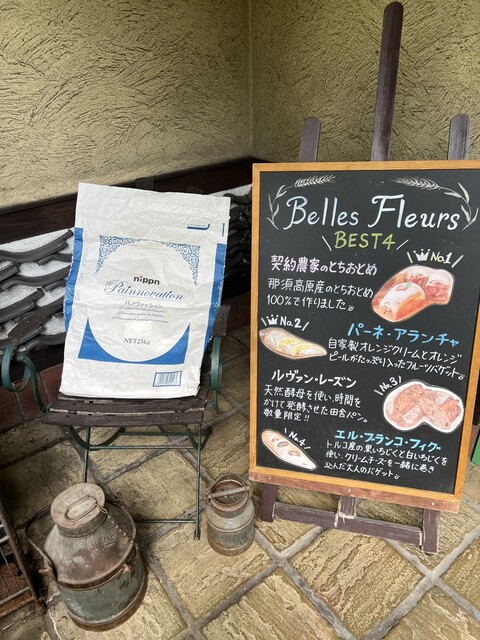 nippn
Painnovation
パノヴァッション
NET25kg
Belles Fleurs
BEST4
契約農家のとちおとめ
No.1
那須高原産のとちおとめ
100%で作りました。
No.2
パーネ・アランチャ
自家製オレンジクリームとオレンジ
ピールがたっぷり入ったフルーツバゲット。
ルヴァン・レーズン
No.3
天然酵母を使い、時間を
かけて発酵させた田舎パン。
数量限定!!
No.4
エル・ブランコ・フィグ
トルコ産の黒いちじくと白いちじくを
使い、クリームチーズを一緒に巻き
込んだ大人のバゲット。